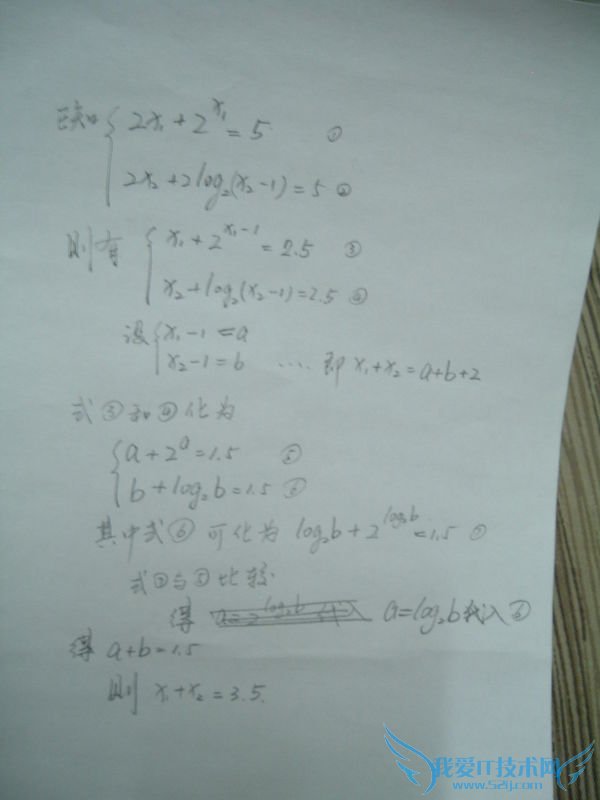 已知 { 2x₁ + 2^{x₁} = 5 ①
2x₂ + 2log₂(x₂-1) = 5 ②
则有 { x₁ + 2^{x₁-1} = 2.5 ③
x₂ + log₂(x₂-1) = 2.5 ④
设 { x₁-1 = a
x₂-1 = b ‥‥ 即 x₁+x₂ = a+b+2
式③和④化为
{ a + 2^a = 1.5 ⑤
b + log₂b = 1.5 ⑥
其中式⑥可化为 log₂b + 2^{log₂b} = 1.5 ⑦
式⑦与⑤比较
得 a = log₂b 代入⑥
得 a+b = 1.5
则 x₁+x₂ = 3.5.
我爱IT技术网
www.52ij.com